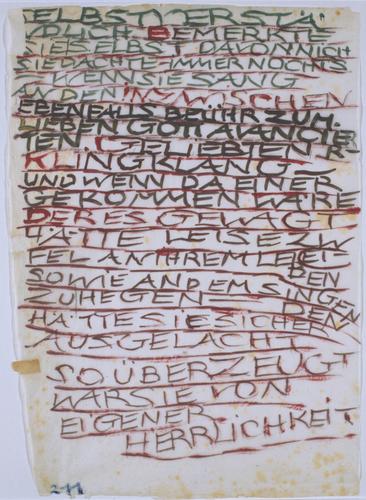 SELBSTVERSTÄ
NDLICH BEMERKTE
SIE SELBST DAVON NICH
SIE DACHTE IMMER NOCH S
WENN SIE SANG
AN DEN INZWISCHEN
EBENFALLS BEI IHR ZUM
GOTT AVANCIER
TEN GELIEBTEN
KLINGKLANG
UND WENN DA EINER
GEKOMMEN WÄRE
DER ES GEWAGT
HÄTTE LEISE ZW
EIFEL AN IHREM LEI
DEN
SOWIE AN DEM SINGEN
ZU HEGEN DEN
HÄTTE SIE SICHER
AUSGELACHT
SO ÜBERZEUGT
WAR SIE VON
EIGENER
HERRLICHKEIT